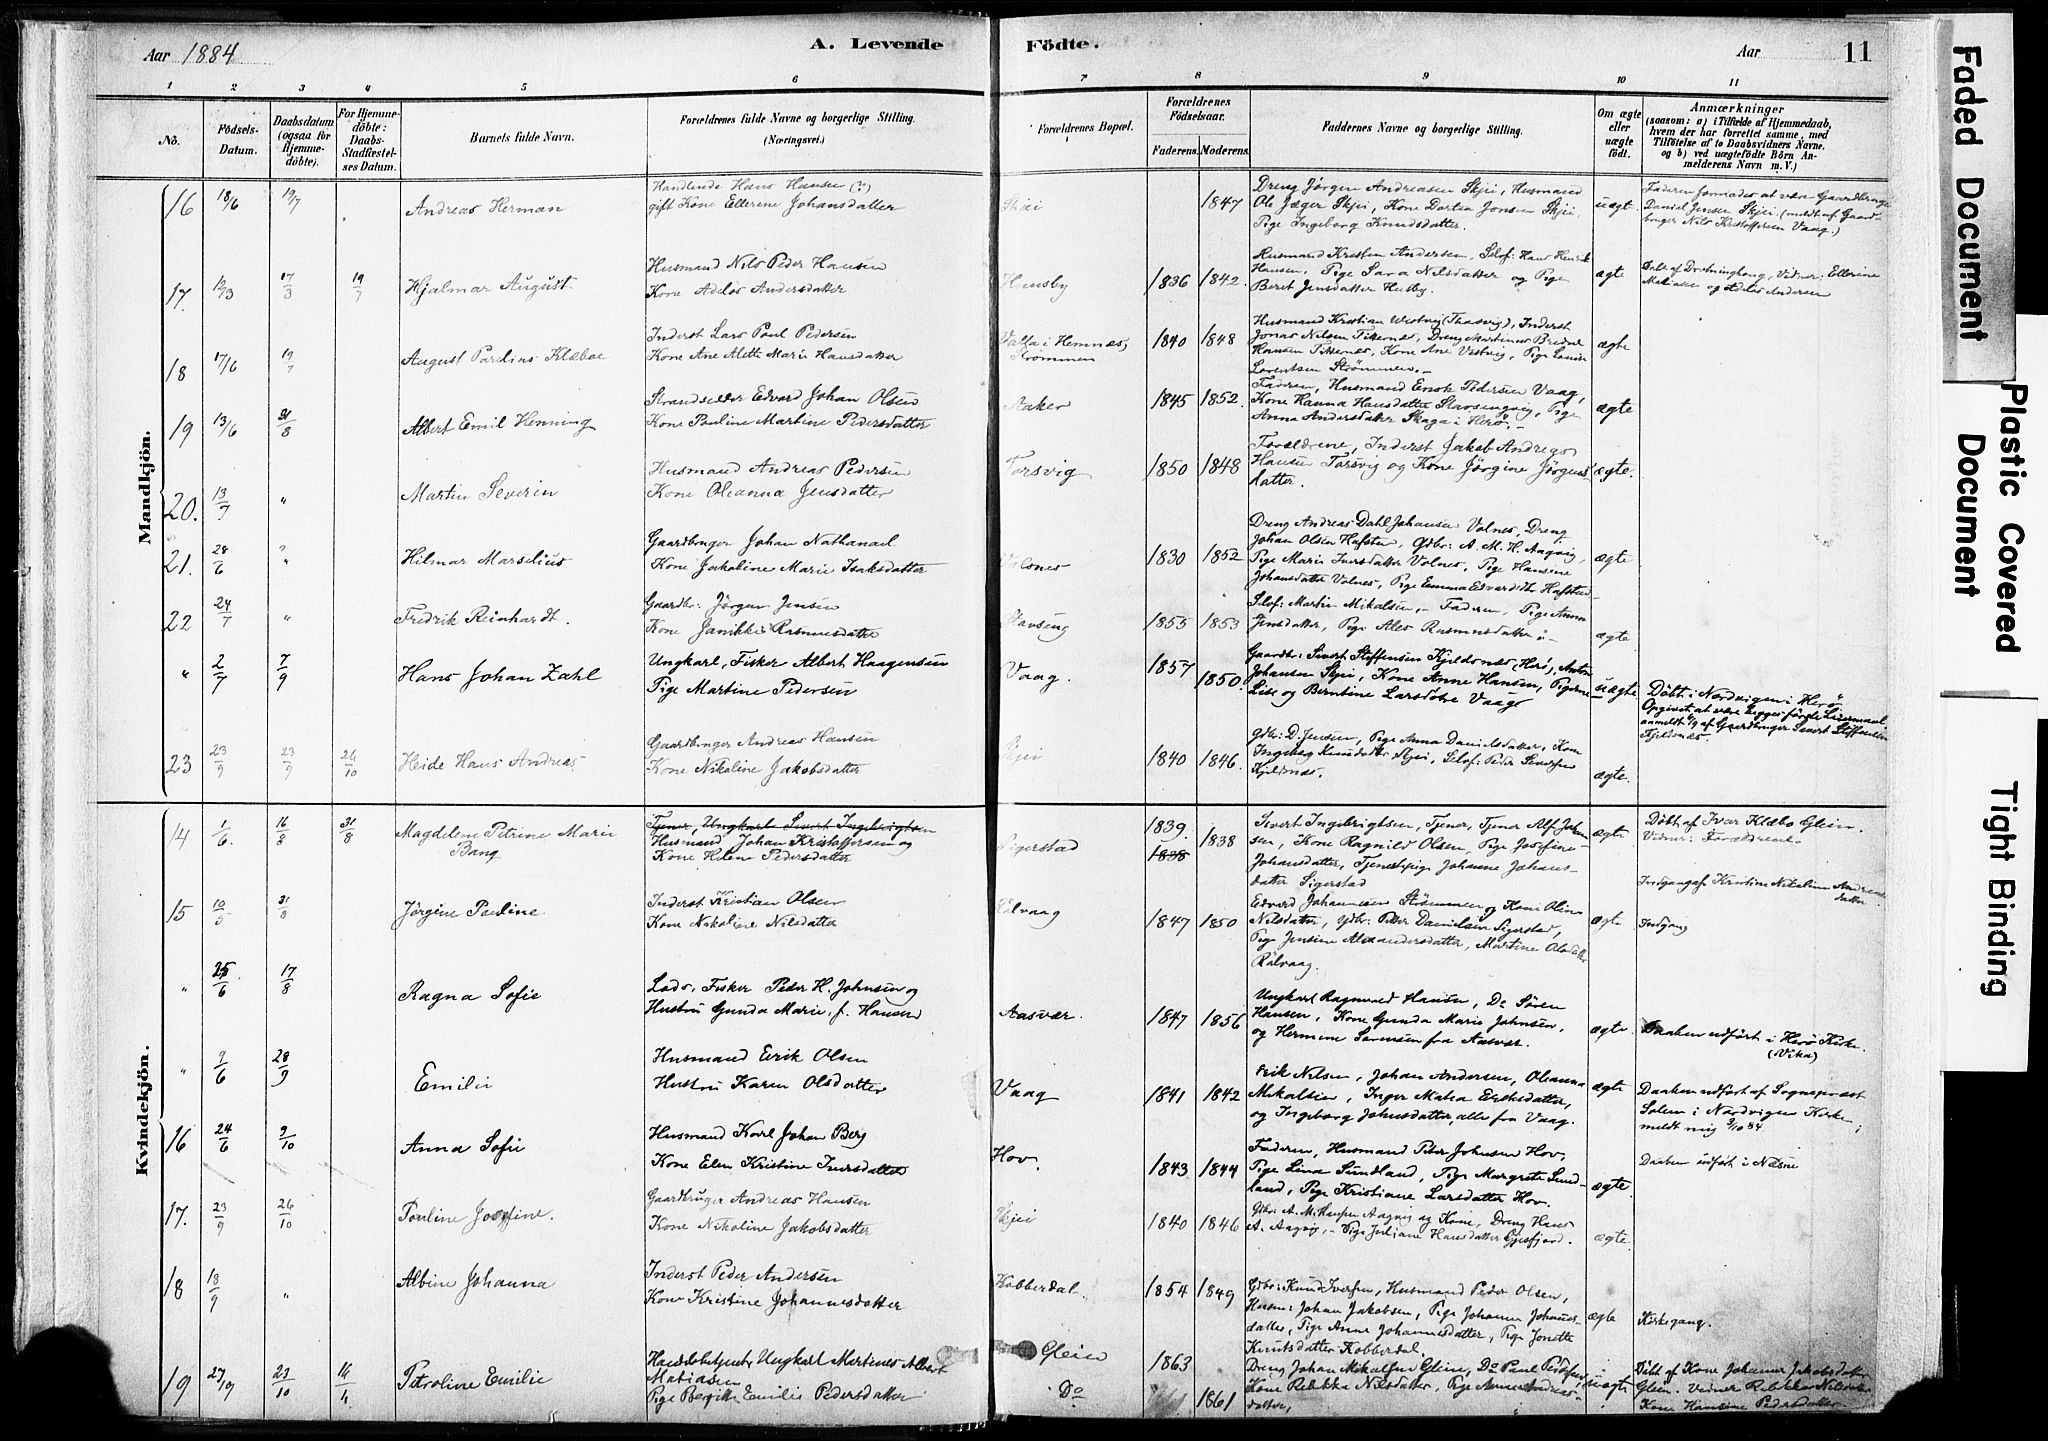 Aar 1884
A. Levende
Födte.
Aar
11
1 2 3 4 5 6 7 8 9 10 11
No.
Födsels-Datum.
Daabsdatum (ogsaa for Hjemme-döbte).
For Hjemme-döbte: Daabs-Stadfæstelses Datum.
Barnets fulde Navn.
Forældrenes fulde Navne og borgerlige Stilling. (Næringsvei.)
Forældrenes Bopæl.
Forældrenes Födselsaar.
Faderens. Moderens.
Faddernes Navne og borgerlige Stilling.
Om ægte eller uægte födt.
Anmærkninger
(saasom: a) i Tilfælde af Hjemmedaab, hvem der har forrettet samme, med Tilföielse af to Daabsvidners Navne, og b) ved uægtefödte Börn Anmelderens Navn m. V.)
Mandkjön.
16 18/6 19/7 Andreas Herman
Handlende Hans Hansen (?)
gift Kone Ellerine Johansdatter
Skjei 1847
Dreng Jörgen Andreasen Skjei, Husmand
Ole Jæger Skjei, Kone Dortea Jonsen Skjei,
Pige Ingeborg Knudsdatter.
uægt.
Faderen formodes at være Gaardbruger
Daniel Jensen Skjei. (meldt af Gaard-
bruger Nils Kristoffersen Vaag.)
17. 12/3 17/3 19/7 Hjalmar August
Husmand Nils Peder Hansen
Kone Adelos Andersdatter
Huusby 1836 1842.
Husmand Kristen Andersen, Selof: Hans Henrik
Hansen, Pige Sara Nilsdatter og Pige
Beret Jensdatter Husby.
ægte
18 17/6 19/7 August Paulius Klæboe
Inderst Lars Paul Pedersen
Kone Ane Alette Marie Hansdatter
Valla i Hemnæs, Strömmen 1840 1848
ægte
19 13/6 31/8 Albert Emil Henning
Strandsidder Edvard Johan Olsen
Kone Pauline Martine Pedersdatter
Aaker 1845 1852.
Faderen, Husmand Enok Pedersen Vaag,
Kone Hanna Hansdatter Stavsengvig, Pige
Anna Andersdatter Skaga i Herö.
ægte
20. 13/7 " Martin Severin
Husmand Andreas Pedersen
Kone Oleanna Jensdatter
Torsvig 1850 1848
Forældrene, Inderst Jakob Andreas
Hansen Torsvig og Kone Jörgine Jörgens-
datter.
ægte.
21. 28/6 " Hilmar Marselius
Gaardbruger Johan Nathanael
Kone Jakoline Marie Isaksdatter
Volsnes 1830 1852
Dreng Andreas Dahl Johansen Volnes, Dreng
Johan Olsen Hafsten, Gdbr: A. M. H. Aagvig,
Pige Marie Iversdatter Volnes, Pige Hansine
Johansdatter Volnes, Pige Emma Edvardsdtr Hafsten
ægte
22 24/7 " Fredrik Reinhardt.
Gaardbr: Jörgen Jensen
Kone Janikke Rasmusdatter
Stavseng 1855 1853
Selof: Martin Mikalsen, Faderen, Pige Anna
Jensdatter, Pige Ales Rasmusdatter
ægte
" 2/7 7/9 Hans Johan Zahl
Ungkarl, Fisker Albert Haagensen
Pige Martine Pedersen
Vaag. 1857 1850.
Gaardbr: Sivert Steffensen Kjeldsnes (Herö), Anton
Johansen Skjei, Kone Anne Hansen, Pigerne
Lise og Berntine Larsdötre Vaag
uægte
Döbt i Nordvigen i Herö
Opgivet at være begges förste Leiermaal
anmeldt 7/9 af Gaardbruger Sivert Steffensen
Kjeldsnes.
23 23/9 23/9 26/10 Heide Hans Andreas
Gaardbruger Andreas Hansen
Kone Nikoline Jakobsdatter
Skjei 1840 1846.
Gdbr: D. Jensen, Pige Anna Danielsdatter, Kone
Ingeborg Knudsdatter Skjei, Selof: Peder Sivertsen
Kjeldsnes.
ægte.
Kvindekjön.
14 1/6. 16/8 31/8 Magdelene Petrine Marie Bang
Tjener, Ungkarl Sivert Ingebrigtsen
Husmand Johan Kristoffersen og
Kone Helene Pedersdatter
Sigerstad 1839. 1838 1838
Sivert Ingebrigtsen, Tjener, Tjener Alf Johan-
sen, Kone Ragnild Olsen, Pige Josefine
Johansdatter, Tjenestepige Johanne Johans-
datter Sigerstad
ægte
Döbt af Ivar Klæbo Glein.
Vidner: Forældrene.
Indgang af Kristine Nikoline Andreas-
datter.
15 10/5 31/8 Jörgine Pauline
Inderst Kristian Olsen
Kone Nikoline Nilsdatter
Rölvaag 1847 1850
Edvard Johannesen Strömmen og Kone Olina
Nilsdatter, Gdbr: Petter Danielsen Sigerstad,
Pige Jensine Alexandersdatter, Martine Olsdatter
Rölvaag.
ægte
Indgang
" 25/6 17/8 Ragna Sofie
Lods, Fisker Peder H. Johnsen og
Hustru Gunda Marie, f. Hansen
Aasvær. 1847 1856
Ungkarl Ragnvald Hansen, Do Sören
Hansen, Kone Gunda Marie Johnsen,
og Hermine Sörensen fra Aasvær.
ægte.
Daaben udfört i Herö Kirke.
(Vika)
" 9/6 28/9 Emilie
Husmand Eirik Olsen
Hustru Karen Olsdatter
Vaag 1841 1842
Erik Nilsen, Johan Andersen, Oleanna
Mikalsen, Inger Maria Eriksdatter,
og Ingeborg Johnsdatter, alle fra Vaag.
ægte
Daaben udfört af Sognepræst
Solem i Nordvigen Kirke;
meldt mig 9/10 84
16 24/6 9/10 Anna Sofie
Husmand Karl Johan Berg
Kone Elen Kristine Iversdatter
Hov. 1843 1844
Faderen, Husmand Peter Johnsen Hov,
Pige Lina Sundland, Pige Margrete Sund-
land, Pige Kristiane Larsdatter Hov.
ægte.
Daaben udfört i Næsne
17. 23/9 26/10 Pauline Josefine.
Gaardbruger Andreas Hansen
Kone Nikoline Jakobsdatter
Skjei 1840 1846
Gdbr: A. M. Hansen Aagvig og Kone, Dreng Hans
A. Aagvig, Pige Juliane Hansdatter
ægte.
18 13/9 " Albine Johanna
Inderst Peder Andersen
Kone Kristine Johannesdatter
Kobberdal. 1854 1849
Gdbr: Knud Iversen, Husmand Peder Olsen,
Husm: Johan Jakobsen, Pige Johanna Johannes-
datter, Pige Anne Johannesdatter, Pige Jonette
Knutsdatter Kobberdal.
ægte
Kirkegang.
19 27/9 23/10 Petroline Emilie
Handelsbetjent, Ungkarl Martines Albert
Matiasen
Pige Bergitte Emilie Pedersdatter
Glein 1863
Do 1861
Dreng Johan Mikalsen Glein, Do Paul Pedersen
Kone Rebekka Nilsdatter, Pige Anne Andreas-
datter,
uægt
Döbt af Kone Johanna Jakobsdatter
Glein. Vidner Rebekka Nilsdatter
Kone Hansine Pedersdatter
Faded Document
Plastic Covered Document
Tight Binding